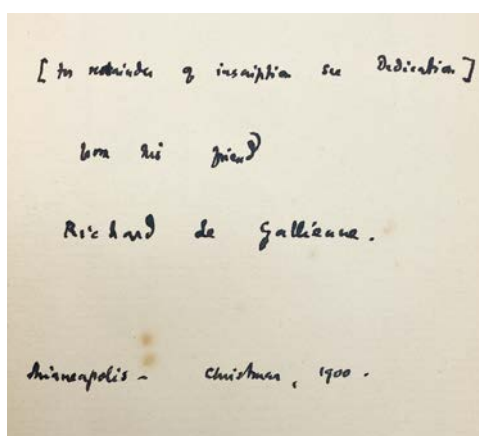 [for remainder of inscription see Dedication]
from his friend
Richard Le Gallienne.
Minneapolis – Christmas, 1900.